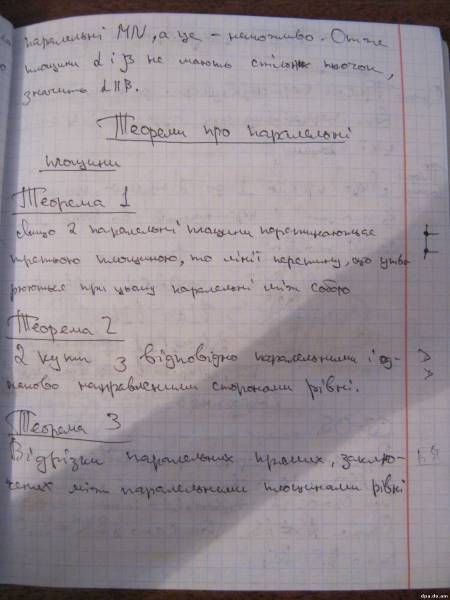 паралельні MN, а це - неможливо. Отже
площини α і β не мають спільн точок,
значить α||β.
Теореми про паралельні
площини
Теорема 1
якщо 2 паралельні площини перетинаються
третьою площиною, то лінії перетину, що утво
рюються при цьому паралельні між собою
Теорема 2
2 кути з відповідно паралельними і од-
наково направленими сторонами рівні.
Теорема 3
Відрізки паралельних прямих, заключ-
чених між паралельними площинами рівні
dpa.dn.ua